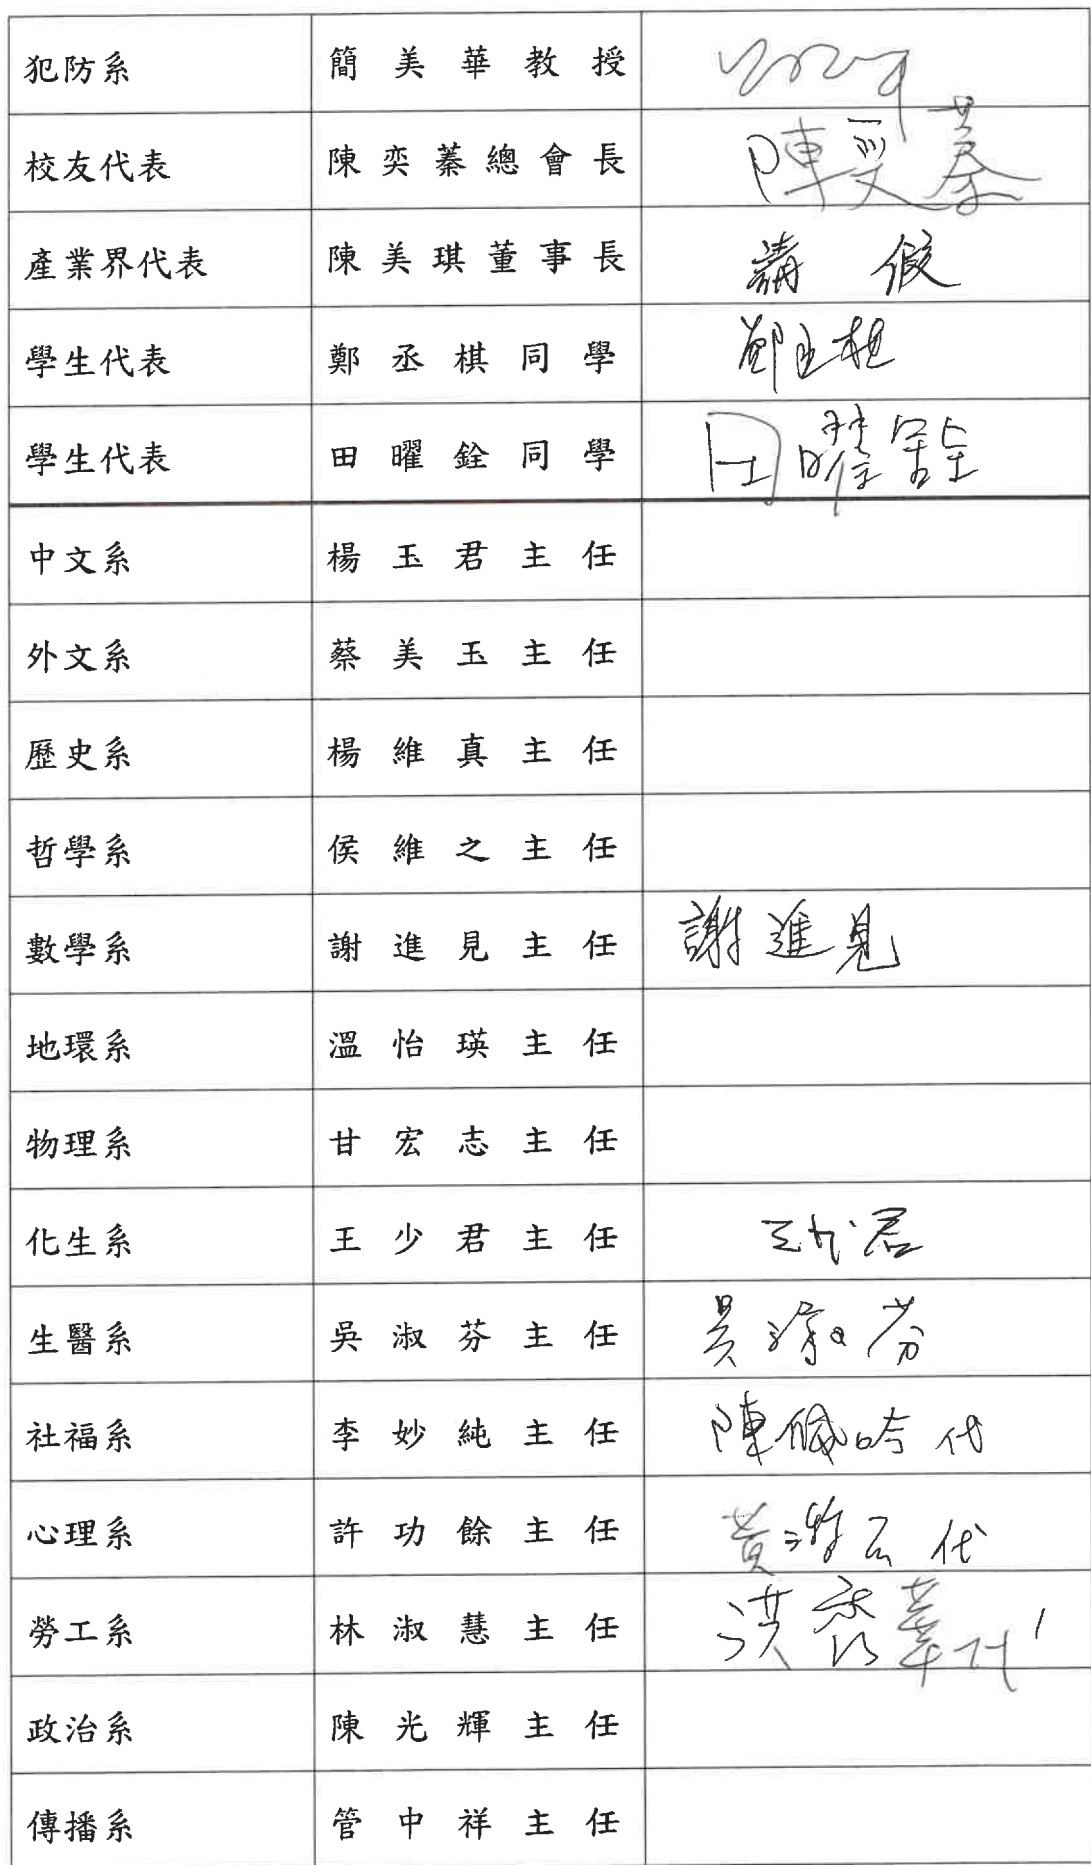 犯防系 簡美華教授
校友代表 陳奕蓁總會長 陳奕蓁
產業界代表 陳美琪董事長 請假
學生代表 鄭丞棋同學 鄭丞棋
學生代表 田曜銓同學 田曜銓
中文系 楊玉君主任
外文系 蔡美玉主任
歷史系 楊維真主任
哲學系 侯維之主任
數學系 謝進見主任 謝進見
地環系 溫怡瑛主任
物理系 甘宏志主任
化生系 王少君主任 王少君
生醫系 吳淑芬主任 吳淑芬
社福系 李妙純主任 陳 代
心理系 許功餘主任 黃 代
勞工系 林淑慧主任 洪 華代
政治系 陳光輝主任
傳播系 管中祥主任